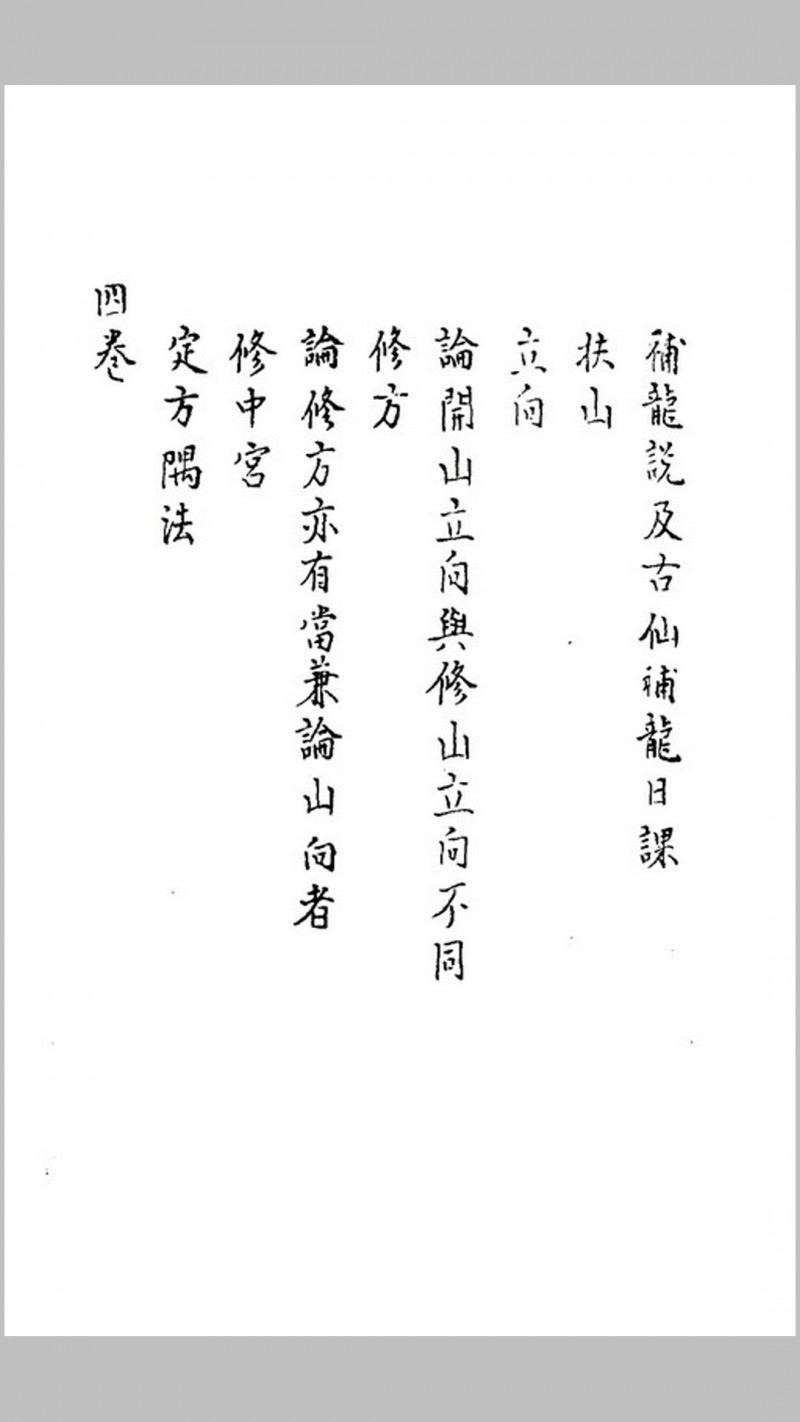 補龍説及古仙補龍日課
扶山
立向
論開山立向與修山立向不同
修方
論修方亦有當兼論山向者
修中宮
定方隅法
四卷